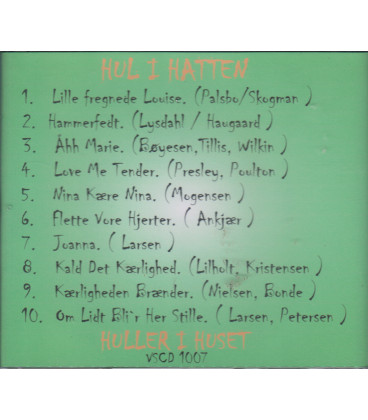 HUL I HATTEN
1. Lille fregnede Louise. (Palsbo/Skogman )
2. Hammerfedt. (Lysdahl / Haugaard )
3. Åhh Marie. (Bøyesen,Tillis, Wilkin )
4. Love Me Tender. (Presley, Poulton )
5. Nina Kære Nina. (Mogensen )
6. Flette Vore Hjerter. ( Ankjær )
7. Joanna. ( Larsen )
8. Kald Det Kærlighed. (Lilholt, Kristensen )
9. Kærligheden Brænder. (Nielsen, Bonde )
10. Om Lidt Bli`r Her Stille. ( Larsen, Petersen )
HULLER I HUSET
VSCD 1007